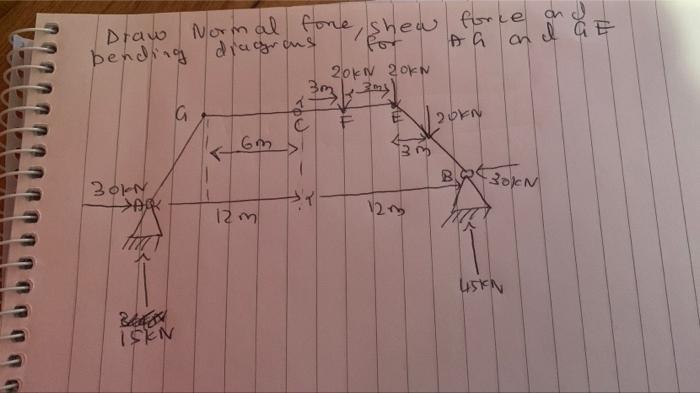 Draw Normal force, shear force and
bending diagrams for AG and GE
20KN 20KN
3m 3m
G C F E 20KN
6m 3m
30KN A B 30KN
12m 12m
45KN
15KN